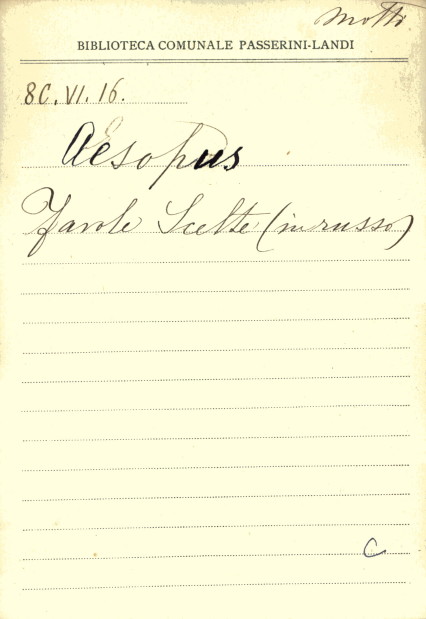 Motti
BIBLIOTECA COMUNALE PASSERINI-LANDI
8C.VI.16.
Aesopus
Favole Scelte (in russo)
C